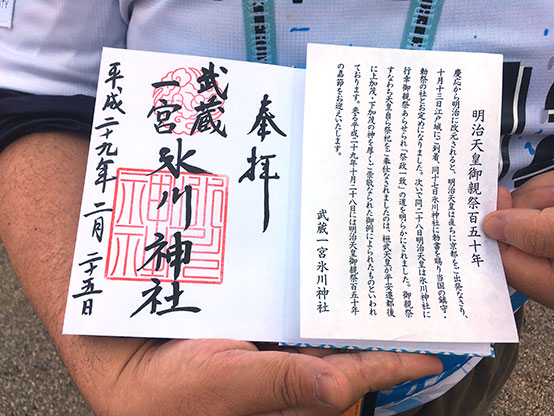 奉拝
武蔵
一宮
氷川神社
平成二十九年二月二十五日
明治天皇御親祭百五十年
慶応から明治に改元されると、明治天皇は直ちに京都をご出発なさり、
十月十三日江戸城にご到着、同十七日氷川神社に勅書を賜り当国の鎮守・
勅祭の社とお定めになりました。次いで同二十八日明治天皇は氷川神社に
行幸御親祭あらせられ「祭政一致」の道を明らかにされました。御親祭
すなわち天皇自ら祭祀をご奉仕なされましたのは、桓武天皇が平安遷都後
に上加茂・下加茂の神を厚くご崇敬なられた御例によられたものといわれ
ております。来る平成二十九年十月二十八日には明治天皇御親祭百五十年
の嘉節をお迎えいたします。
武蔵一宮氷川神社